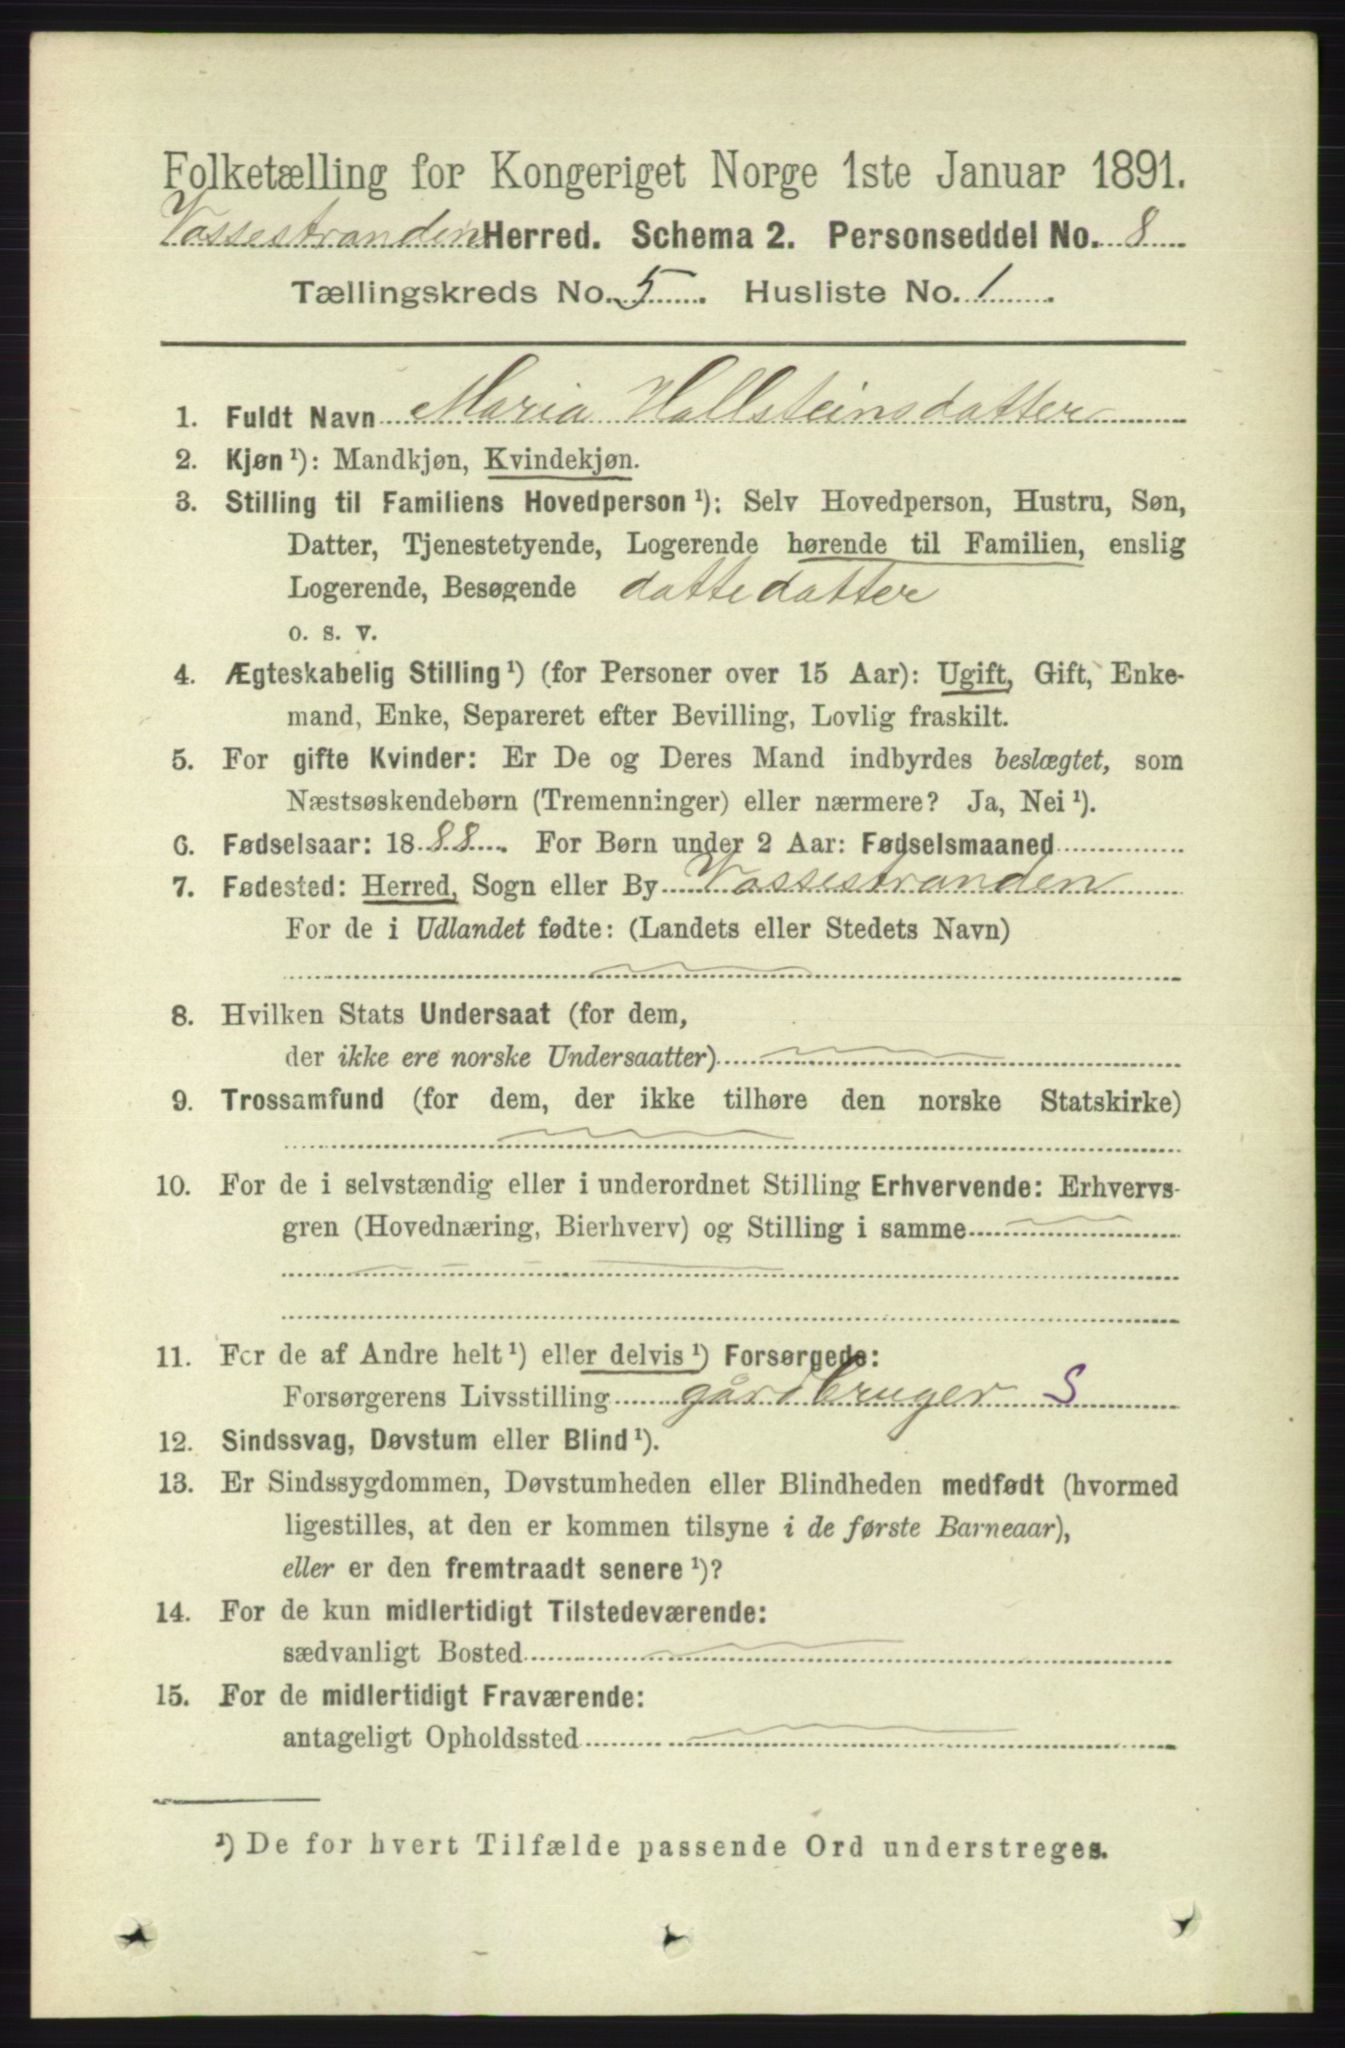 Folketælling for Kongeriget Norge 1ste Januar 1891.
Vossestranden Herred. Schema 2. Personseddel No. 8
Tællingskreds No. 5. Husliste No. 1.
1. Fuldt Navn Maria Hallsteinsdatter
2. Kjøn ¹): Mandkjøn, Kvindekjøn.
3. Stilling til Familiens Hovedperson ¹): Selv Hovedperson, Hustru, Søn,
Datter, Tjenestetyende, Logerende hørende til Familien, enslig
Logerende, Besøgende dattedatter
o. s. v.
4. Ægteskabelig Stilling ¹) (for Personer over 15 Aar): Ugift, Gift, Enke-
mand, Enke, Separeret efter Bevilling, Lovlig fraskilt.
5. For gifte Kvinder: Er De og Deres Mand indbyrdes beslægtet, som
Næstsøskendebørn (Tremenninger) eller nærmere? Ja, Nei ¹).
6. Fødselsaar: 1888. For Børn under 2 Aar: Fødselsmaaned
7. Fødested: Herred, Sogn eller By Vossestranden
For de i Udlandet fødte: (Landets eller Stedets Navn)
8. Hvilken Stats Undersaat (for dem,
der ikke ere norske Undersaatter)
9. Trossamfund (for dem, der ikke tilhøre den norske Statskirke)
10. For de i selvstændig eller i underordnet Stilling Erhvervende: Erhvervs-
gren (Hovednæring, Bierhverv) og Stilling i samme
11. For de af Andre helt ¹) eller delvis ¹) Forsørgede:
Forsørgerens Livsstilling gårdbruger S
12. Sindssvag, Døvstum eller Blind ¹).
13. Er Sindssygdommen, Døvstumheden eller Blindheden medfødt (hvormed
ligestilles, at den er kommen tilsyne i de første Barneaar),
eller er den fremtraadt senere ¹)?
14. For de kun midlertidigt Tilstedeværende:
sædvanligt Bosted
15. For de midlertidigt Fraværende:
antageligt Opholdssted
¹) De for hvert Tilfælde passende Ord understreges.